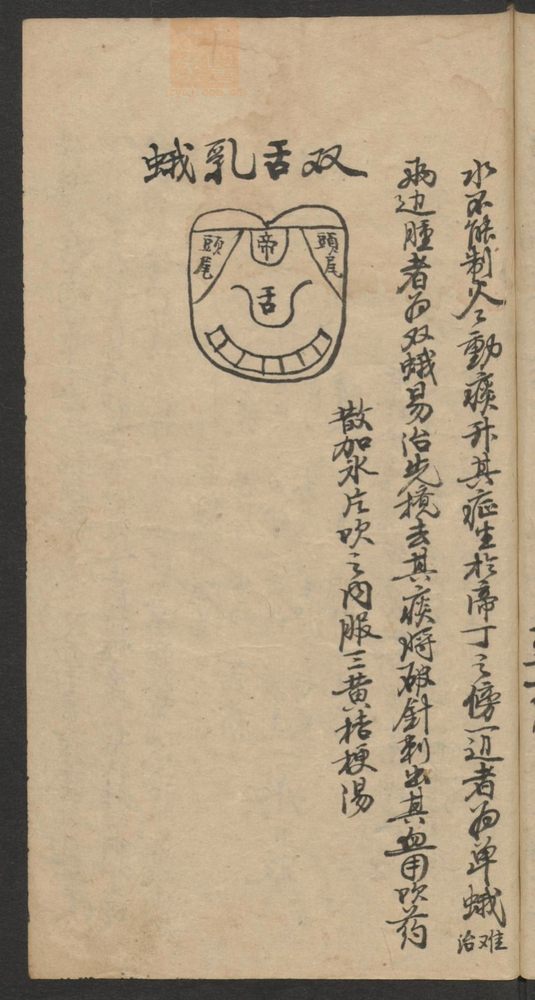 水不能制火〻動痰升其症生於啼丁之傍一边者为单蛾
难治
两边腫者为双蛾易治先攪去其痰将破針刺出其血用吹药
散加氷片吹之内服三黄桔梗湯
双舌乳蛾
頭尾
帝
頭尾
舌